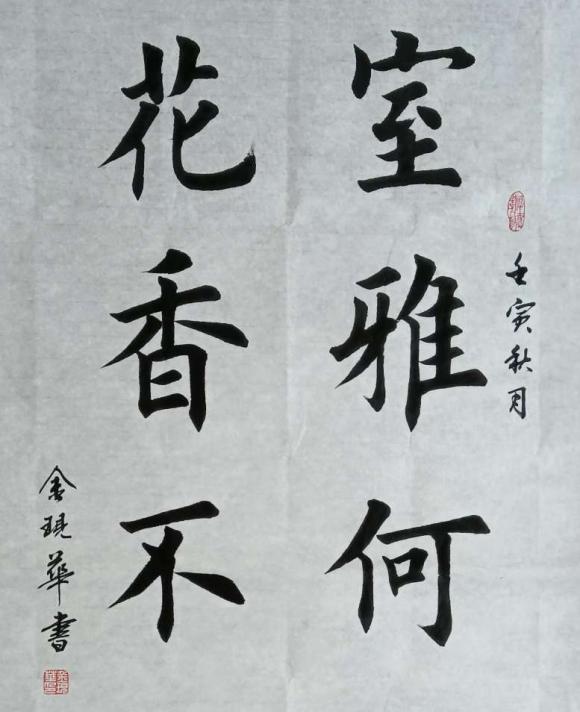 壬寅秋月
室雅何
花香不
金現華書